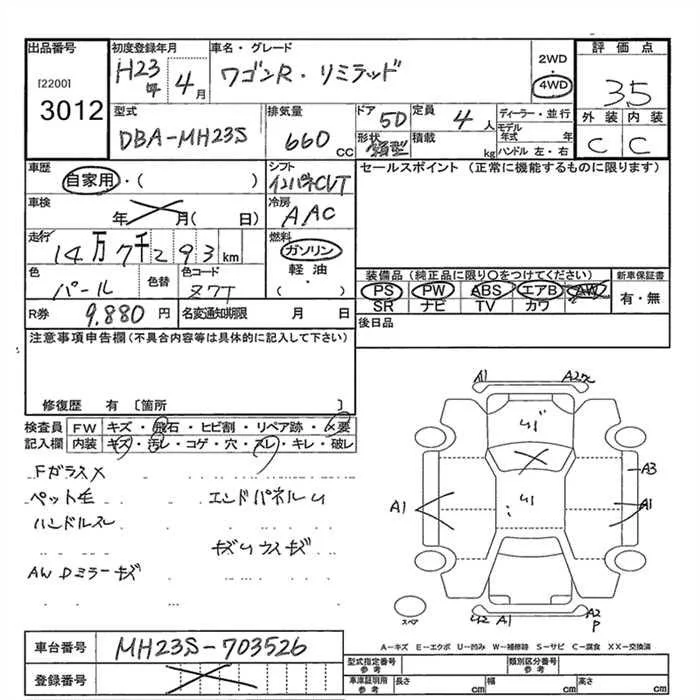 出品番号 初度登録年月 車名・グレード 2WD 評価点
[2200] H23年 4月 ワゴンR・リミテッド 4WD 3.5
3012 外装 内装
型式 排気量 ドア 5D 定員 4人 ディーラー・並行 C C
DBA-MH23S 660cc 形状 箱型 積載 kg モデル年式 年
ハンドル 左・右
車歴 シフト セールスポイント (正常に機能するものに限ります)
自家用・( ) インパネCVT
車検 年 月( 日) 冷房 AAC
走行 燃料
14万7千293km ガソリン
色 色替 色コード 軽油 装備品(純正品に限り○をつけてください) 新車保証書
パール ・( ) PS PW ABS エアB AW 有・無
SR ナビ TV カワ
R券 9,880円 名変通知期限 月 日 後日品
注意事項申告欄(不具合内容等は具体的に記入して下さい)
修復歴 有 [箇所 ]
検査員 FW キズ・飛石・ヒビ割・リペア跡・×要
記入欄 内装 キズ・汚レ・コゲ・穴・スレ・キレ・破レ
Fガラス×
ペット毛 エンドパネルU
ハンドルスレ
キズUウスキズ
AW Dミラーキズ
A1
U1
A3
A1 U1 A1
スペア U2 A1 A2
P
A-キズ E-エクボ U-凹み W-補修跡 S-サビ C-腐食 XX-交換済
車台番号 MH23S-703526
登録番号
型式指定番号 参考 類別区分番号 参考
車庫証明用 参考 長さ cm 幅 cm 高さ cm